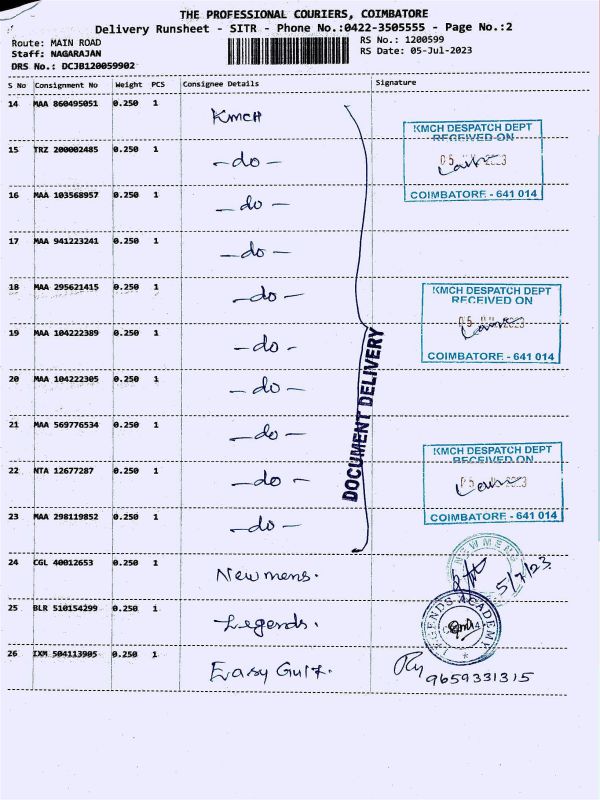 THE PROFESSIONAL COURIERS, COIMBATORE
Delivery Runsheet - SITR - Phone No.:0422-3505555 - Page No.:2
Route: MAIN ROAD
RS No.: 1200599
Staff: NAGARAJAN
RS Date: 05-Jul-2023
DRS No.: DCJB120059902
S No Consignment No Weight PCS Consignee Details Signature
14 MAA 860495051 0.250 1 KMCH
15 TRZ 200002485 0.250 1 -do-
16 MAA 103568957 0.250 1 -do-
17 MAA 941223241 0.250 1 -do-
18 MAA 295621415 0.250 1 -do-
19 MAA 104222389 0.250 1 -do-
20 MAA 104222305 0.250 1 -do-
21 MAA 569776534 0.250 1 -do-
22 NTA 12677287 0.250 1 -do-
23 MAA 298119852 0.250 1 -do-
24 CGL 40012653 0.250 1 Newmens.
25 BLR 510154299 0.250 1 Legends.
26 IXM 504113905 0.250 1 Easy Gulf.
DOCUMENT DELIVERY
KMCH DESPATCH DEPT
RECEIVED ON
05 2023
COIMBATORE - 641 014
KMCH DESPATCH DEPT
RECEIVED ON
05 2023
COIMBATORE - 641 014
KMCH DESPATCH DEPT
RECEIVED ON
05
COIMBATORE - 641 014
NEWMENS
5/7/23
LEGENDS ACADEMY
9659331315